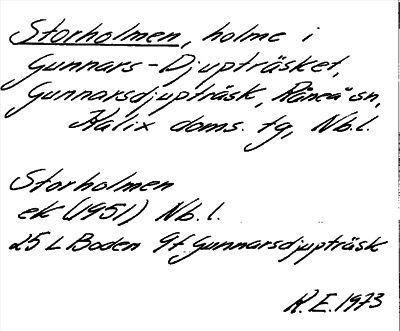 Storholmen, holme i
Gunnars-Djupträsket,
Gunnarsdjupträsk, Råneå sn,
Kalix doms. tg, Nb.l.
Storholmen
ek (1951) Nb.l.
25 L Boden 9f Gunnarsdjupträsk
R.E. 1973